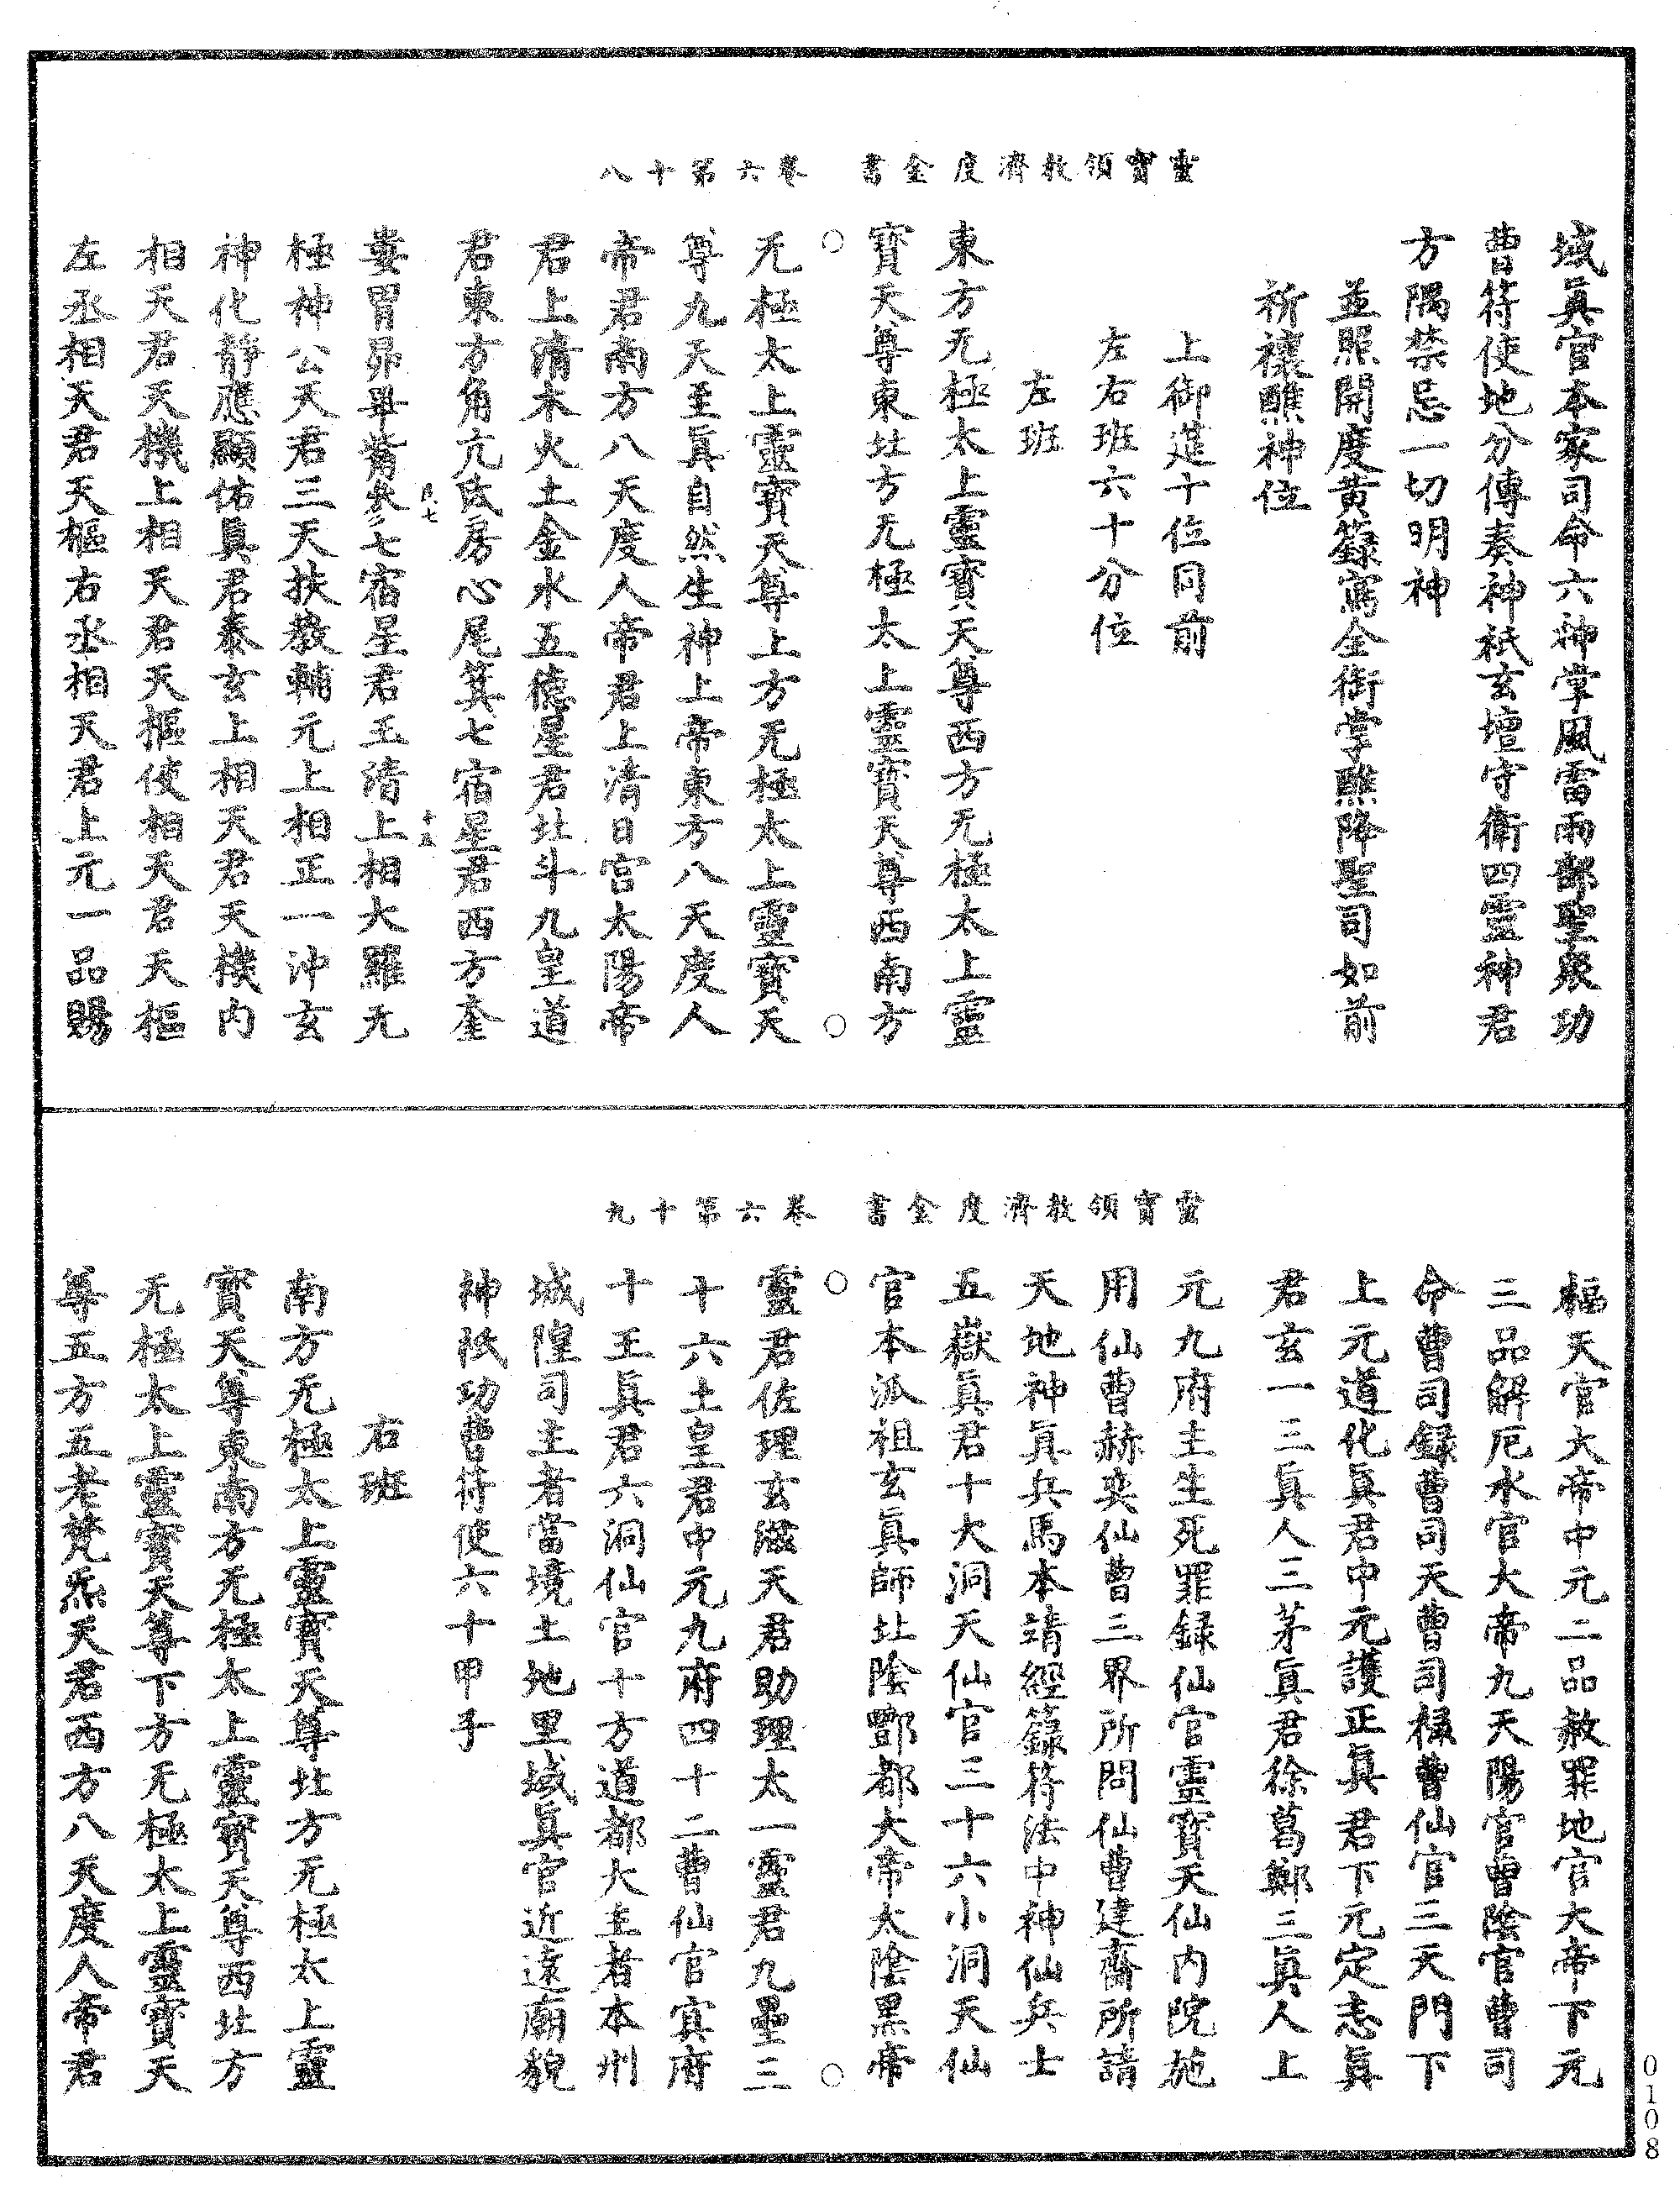 靈寶領教濟度金書　卷六第十八
域眞官本家司命六神掌風雷雨部聖衆功
曹符使地分傳奏神祇玄壇守衛四靈神君
方隅禁忌一切明神
並照開度黃籙寫全銜掌醮降聖司如前
祈禳醮神位
上御筵十位同前
左右班六十分位
左班
東方无極太上靈寶天尊西方无極太上靈
寶天尊東北方无極太上靈寶天尊西南方
无極太上靈寶天尊上方无極太上靈寶天
尊九天至眞自然生神上帝東方八天度人
帝君南方八天度人帝君上清日宮太陽帝
君上清木火土金水五德星君北斗九皇道
君東方角亢氐房心尾箕七宿星君西方奎
婁胃昴畢觜參七宿星君玉清上相大羅无
極神公天君三天扶教輔元上相正一沖玄
神化靜應顯佑眞君泰玄上相天君天機內
相天君天機上相天君天樞使相天君天樞
左丞相天君天樞右丞相天君上元一品賜
靈寶領教濟度金書　卷六第十九
福天官大帝中元二品赦罪地官大帝下元
三品解厄水官大帝九天陽官曹陰官曹司
命曹司錄曹司天曹司祿曹仙官三天門下
上元道化眞君中元護正眞君下元定志眞
君玄一三眞人三茅眞君徐葛鄭三眞人上
元九府主生死罪錄仙官靈寶天仙內院施
用仙曹赫奕仙曹三界所問仙曹建齋所請
天地神眞兵馬本靖經籙符法中神仙兵士
五嶽眞君十大洞天仙官三十六小洞天仙
官本派祖玄眞師北陰酆都大帝太陰黑帝
靈君佐理玄滋天君助理太一靈君九壘三
十六土皇君中元九府四十二曹仙官冥府
十王眞君六洞仙官十方道都大主者本州
城隍司主者當境土地里域眞官近遠廟貌
神祇功曹符使六十甲子
右班
南方无極太上靈寶天尊北方无極太上靈
寶天尊東南方无極太上靈寶天尊西北方
无極太上靈寶天尊下方无極太上靈寶天
尊五方五老梵炁天君西方八天度人帝君
0108